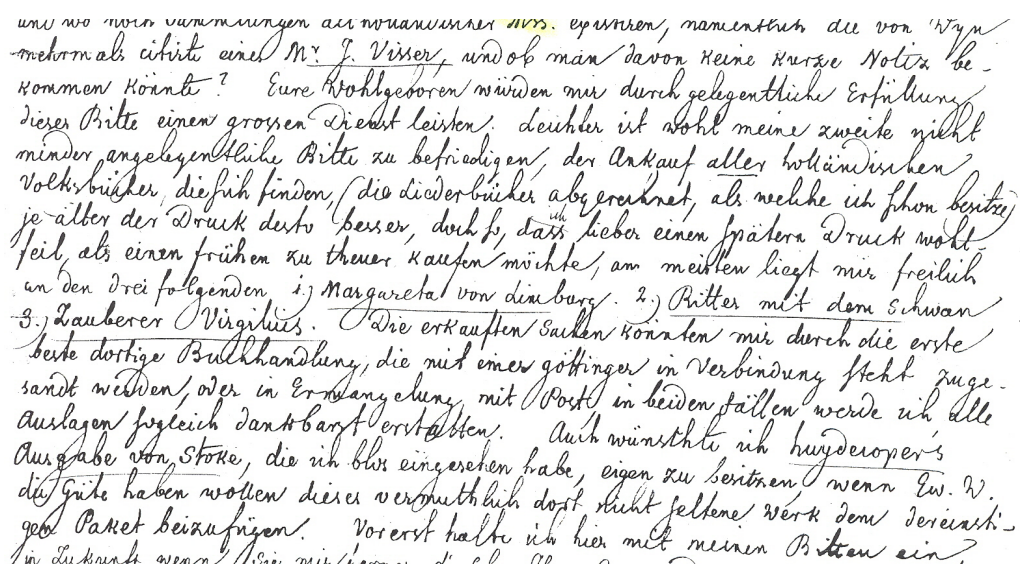 und wo noch Sammlungen altholländischer Mss. existiren, namentlich die von Wyn
mehrmals citirte eines Mr J. Visser, und ob man davon keine kurze Notiz be-
kommen könnte? Eure Wohlgeboren würden mir durch gelegentliche Erfüllung
dieser Bitte einen grossen Dienst leisten. Leichter ist wohl meine zweite nicht
minder angelegentliche Bitte zu befriedigen, der Ankauf aller holländischen
Volksbücher, die sich finden, (die Liederbücher abgerechnet, als welche ich schon besitze)
je älter der Druck desto besser, doch so, dass ich lieber einen spätern Druck wohl-
feil, als einen frühen zu theuer kaufen möchte, am meisten liegt mir freilich
an den drei folgenden 1.) Margareta von Limburg. 2.) Ritter mit dem Schwan
3.) Zauberer Virgilius. Die erkauften Sachen könnten mir durch die erste
beste dortige Buchhandlung, die mit einer göttinger in Verbindung steht zuge-
sandt werden, oder in Ermangelung mit Post, in beiden Fällen werde ich alle
Auslagen sogleich dankbarst erstatten. Auch wünschte ich huydecopers
Ausgabe von Stoke, die ich blos eingesehen habe, eigen zu besitzen, wenn Ew. W.
die Güte haben wollen dieses vermuthlich dort nicht seltene Werk dem dereinsti-
gen Paket beizufügen. Vorerst halte ich hier mit meinen Bitten ein,
in Zukunft wenn Sie mir